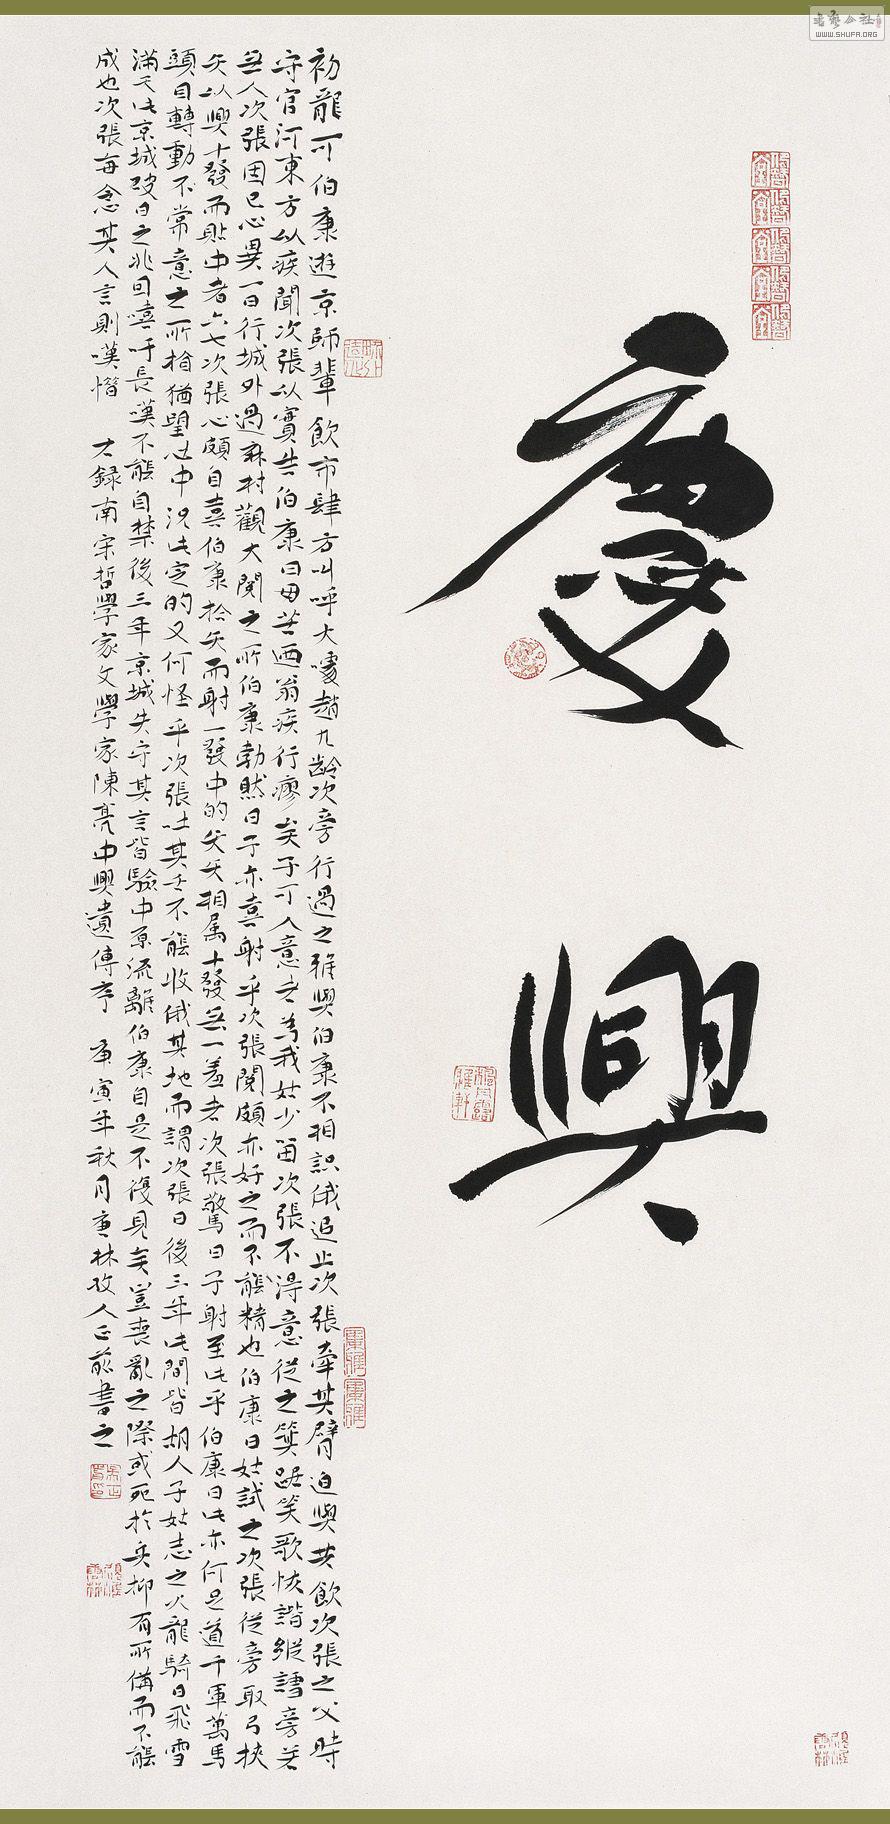 慶興
初龍可伯康遊京師輩飲市肆方叫呼大嚎趙九齡次旁行過之雖與伯康不相識俄追止次張牽其臂迫與共飲次張之父時
守官河東方以疾聞次張以實告伯康曰毋苦廼翁疾行瘳矣子可人意者為我姑少留次張不得意從之箕踞笑歌恢諧縱謔旁若
無人次張固已心異一日行城外過麻村觀大閱之所伯康勃然曰子亦喜射乎次張閱頗亦好之而不能精也伯康曰姑試之次張從旁取弓挾
矢以興十發而貼中者六七次張心頗自喜伯康拾矢而射一發中的矢矢相属十發無一差者次張驚曰子射至此乎伯康曰此亦何足道千軍萬馬
頭目轉動不常意之所指猶望必中況此定的又何怪乎次張吐其舌不能收俄其地而謂次張曰後三年此間皆胡人子姑志之火龍騎日飛雪
滿天此京城破日之兆因嘻吁長嘆不能自禁後三年京城失守其言皆驗中原流離伯康自是不復見矣豈喪亂之際或死於兵抑有所俟而不能
成也次張每念其人言則嘆惜 右錄南宋哲學家文學家陳亮中興遺傳序 庚寅年秋月唐林孜人正茲書之
WWW.SHUFA.ORG